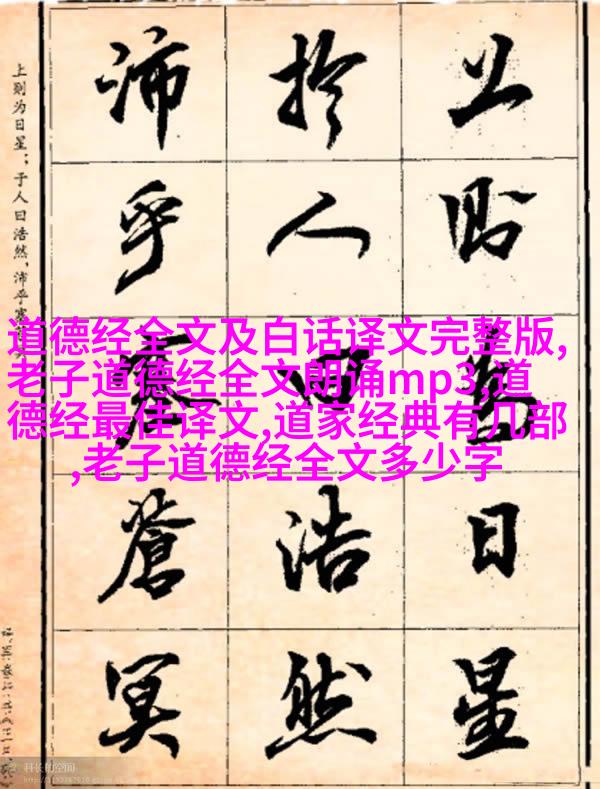 道德经全文及白话译文完整版,
老子道德经全文朗诵mp3,道
德经最佳译文,道家经典有几部
,老子道德经全文多少字
上則為日星
扵人曰浩然
沛乎塞蒼冥
上则为日星；于人曰浩然，沛乎塞
科长的空间